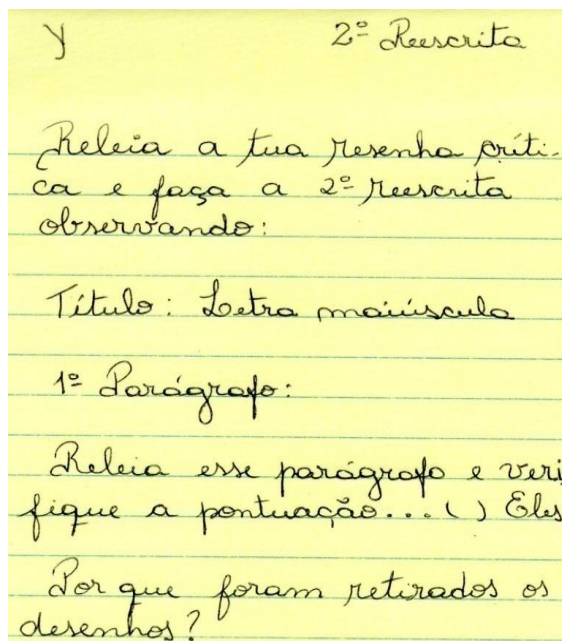 Y 2º Reescrita
Releia a tua resenha críti-
ca e faça a 2º reescrita
observando:
Título: Letra maiúscula
1º Parágrafo:
Releia esse parágrafo e veri
fique a pontuação...( ) Eles
Por que foram retirados os
desenhos?